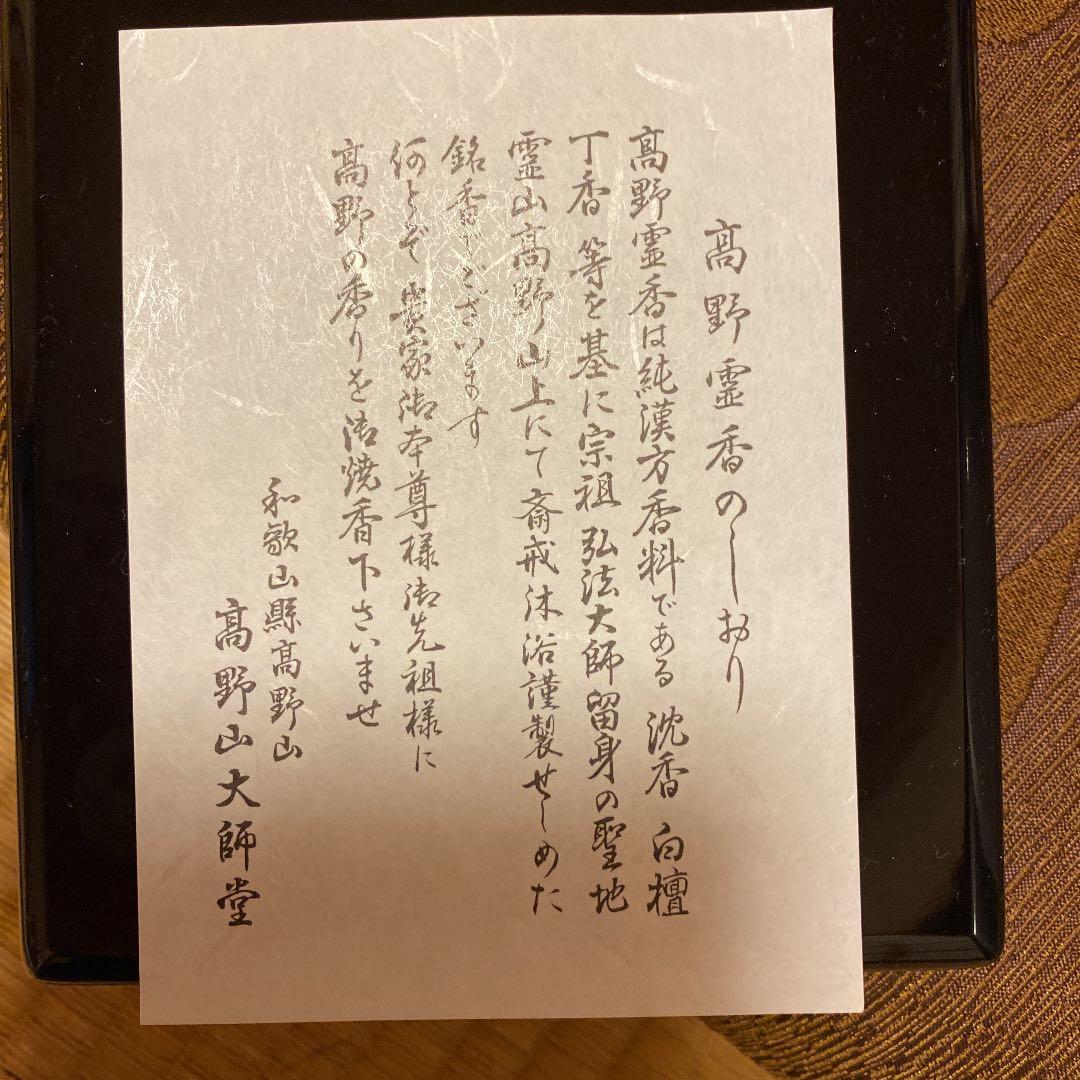 高野霊香のしおり
高野霊香は純漢方香料である 沈香 白檀
丁香 等を基に宗祖 弘法大師留身の聖地
霊山高野山上にて斎戒沐浴謹製せしめた
銘香でございます
何とぞ 貴家御本尊様御先祖様に
高野の香りを御焼香下さいませ
和歌山縣高野山
高野山大師堂